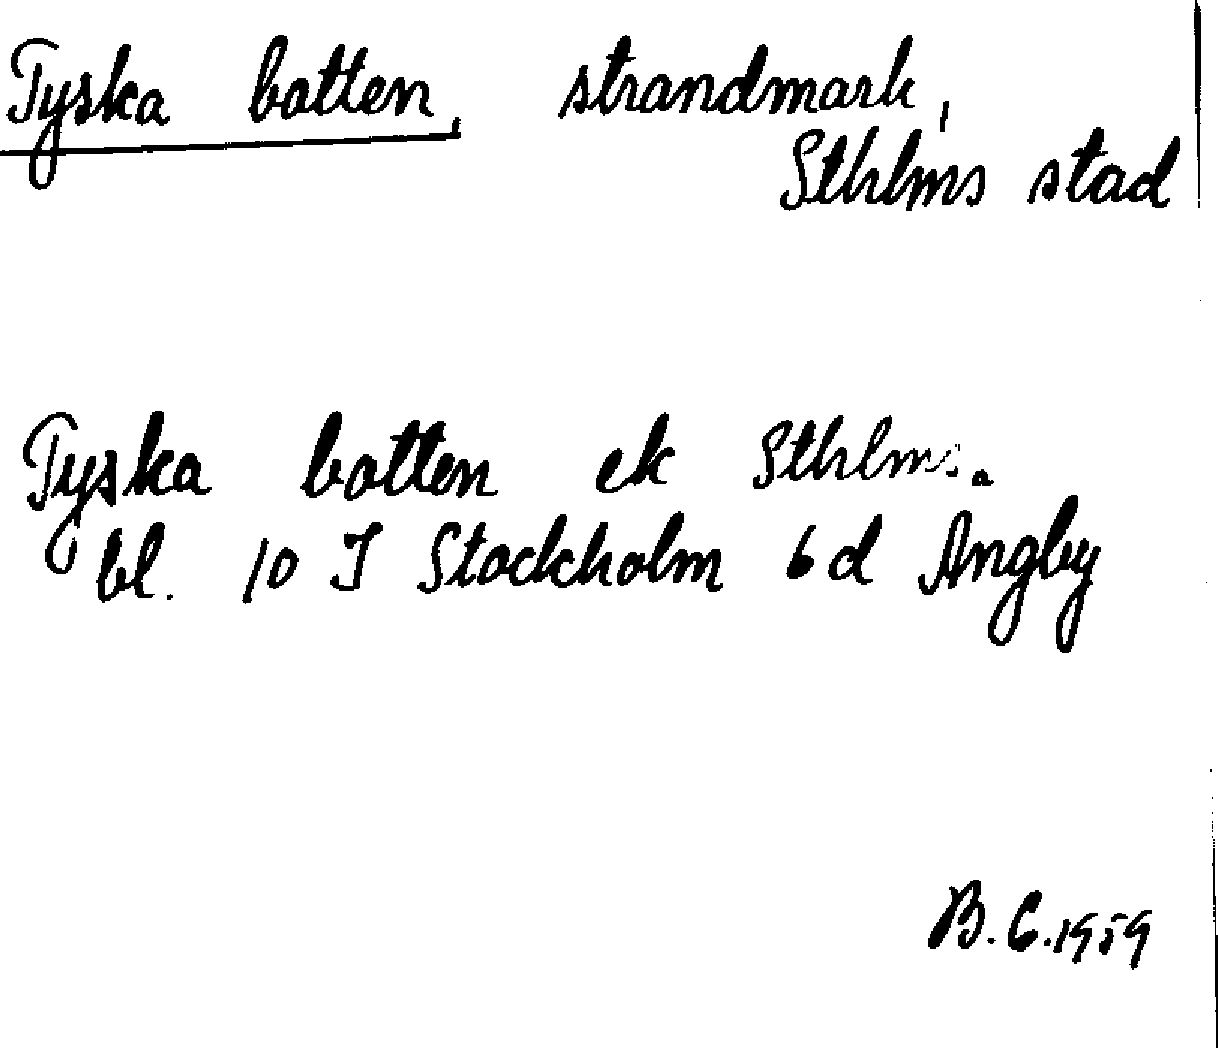 Tyska botten, strandmark,
Sthlms stad
Tyska botten ek Sthlms.
bl. 10 I Stockholm 6 d Ängby
B. C. 1959